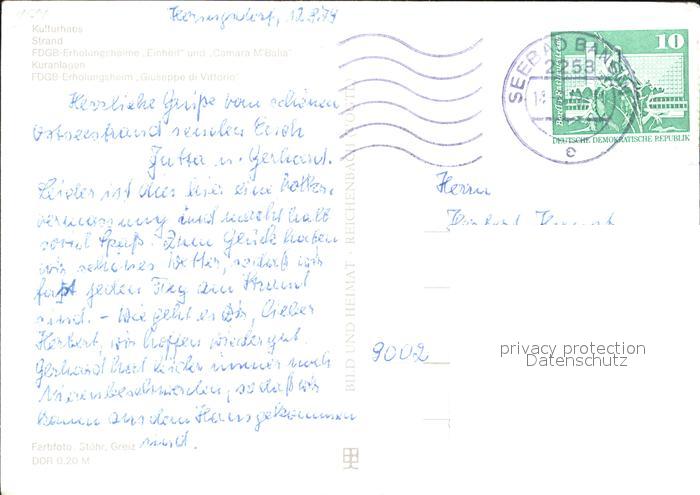 12.9.79
Kulturhaus
Strand
FDGB-Erholungsheime „Einheit" und „Camara M'Balia"
Kuranlagen
FDGB-Erholungsheim „Giuseppe di Vittorio"
Herzliche Grüße vom schönen
Ostseestrand senden Euch
Jutta u. Gerhard.
Leider ist das hier eine
und macht halt
Spaß. Zum Glück haben
wir schönes Wetter, sodaß wir
fast jeden Tag am Strand
sind. - Wie geht es Dir, lieber
Herbert, wir hoffen wieder gut.
Gerhard hat leider immer noch
Nierenbeschwerden, sodaß wir
kaum aus dem Haus gekommen
sind.
Farbfoto: Stöhr, Greiz
DDR 0,20 M
BILD UND HEIMAT REICHENBACH
SEEBAD BANSIN
2253
e
10
DEUTSCHE DEMOKRATISCHE REPUBLIK
Herrn
9002
privacy protection
Datenschutz